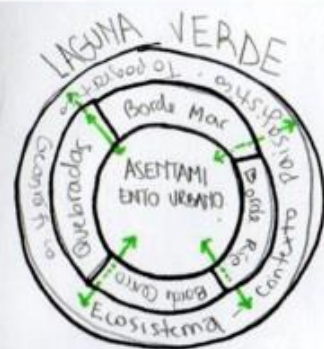 LAGUNA VERDE
Paisajístico
Contexto
Ecosistema
Borde Mar
Borde Río
Borde Cerro
Quebradas
ASENTAMI
ENTO URBANO